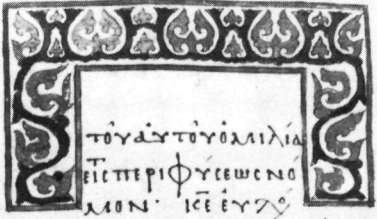 τοῦ αὐτοῦ ὁμιλία
εἰς περὶ φύσεως νό
μον· κ̅ε̅ εὐλό